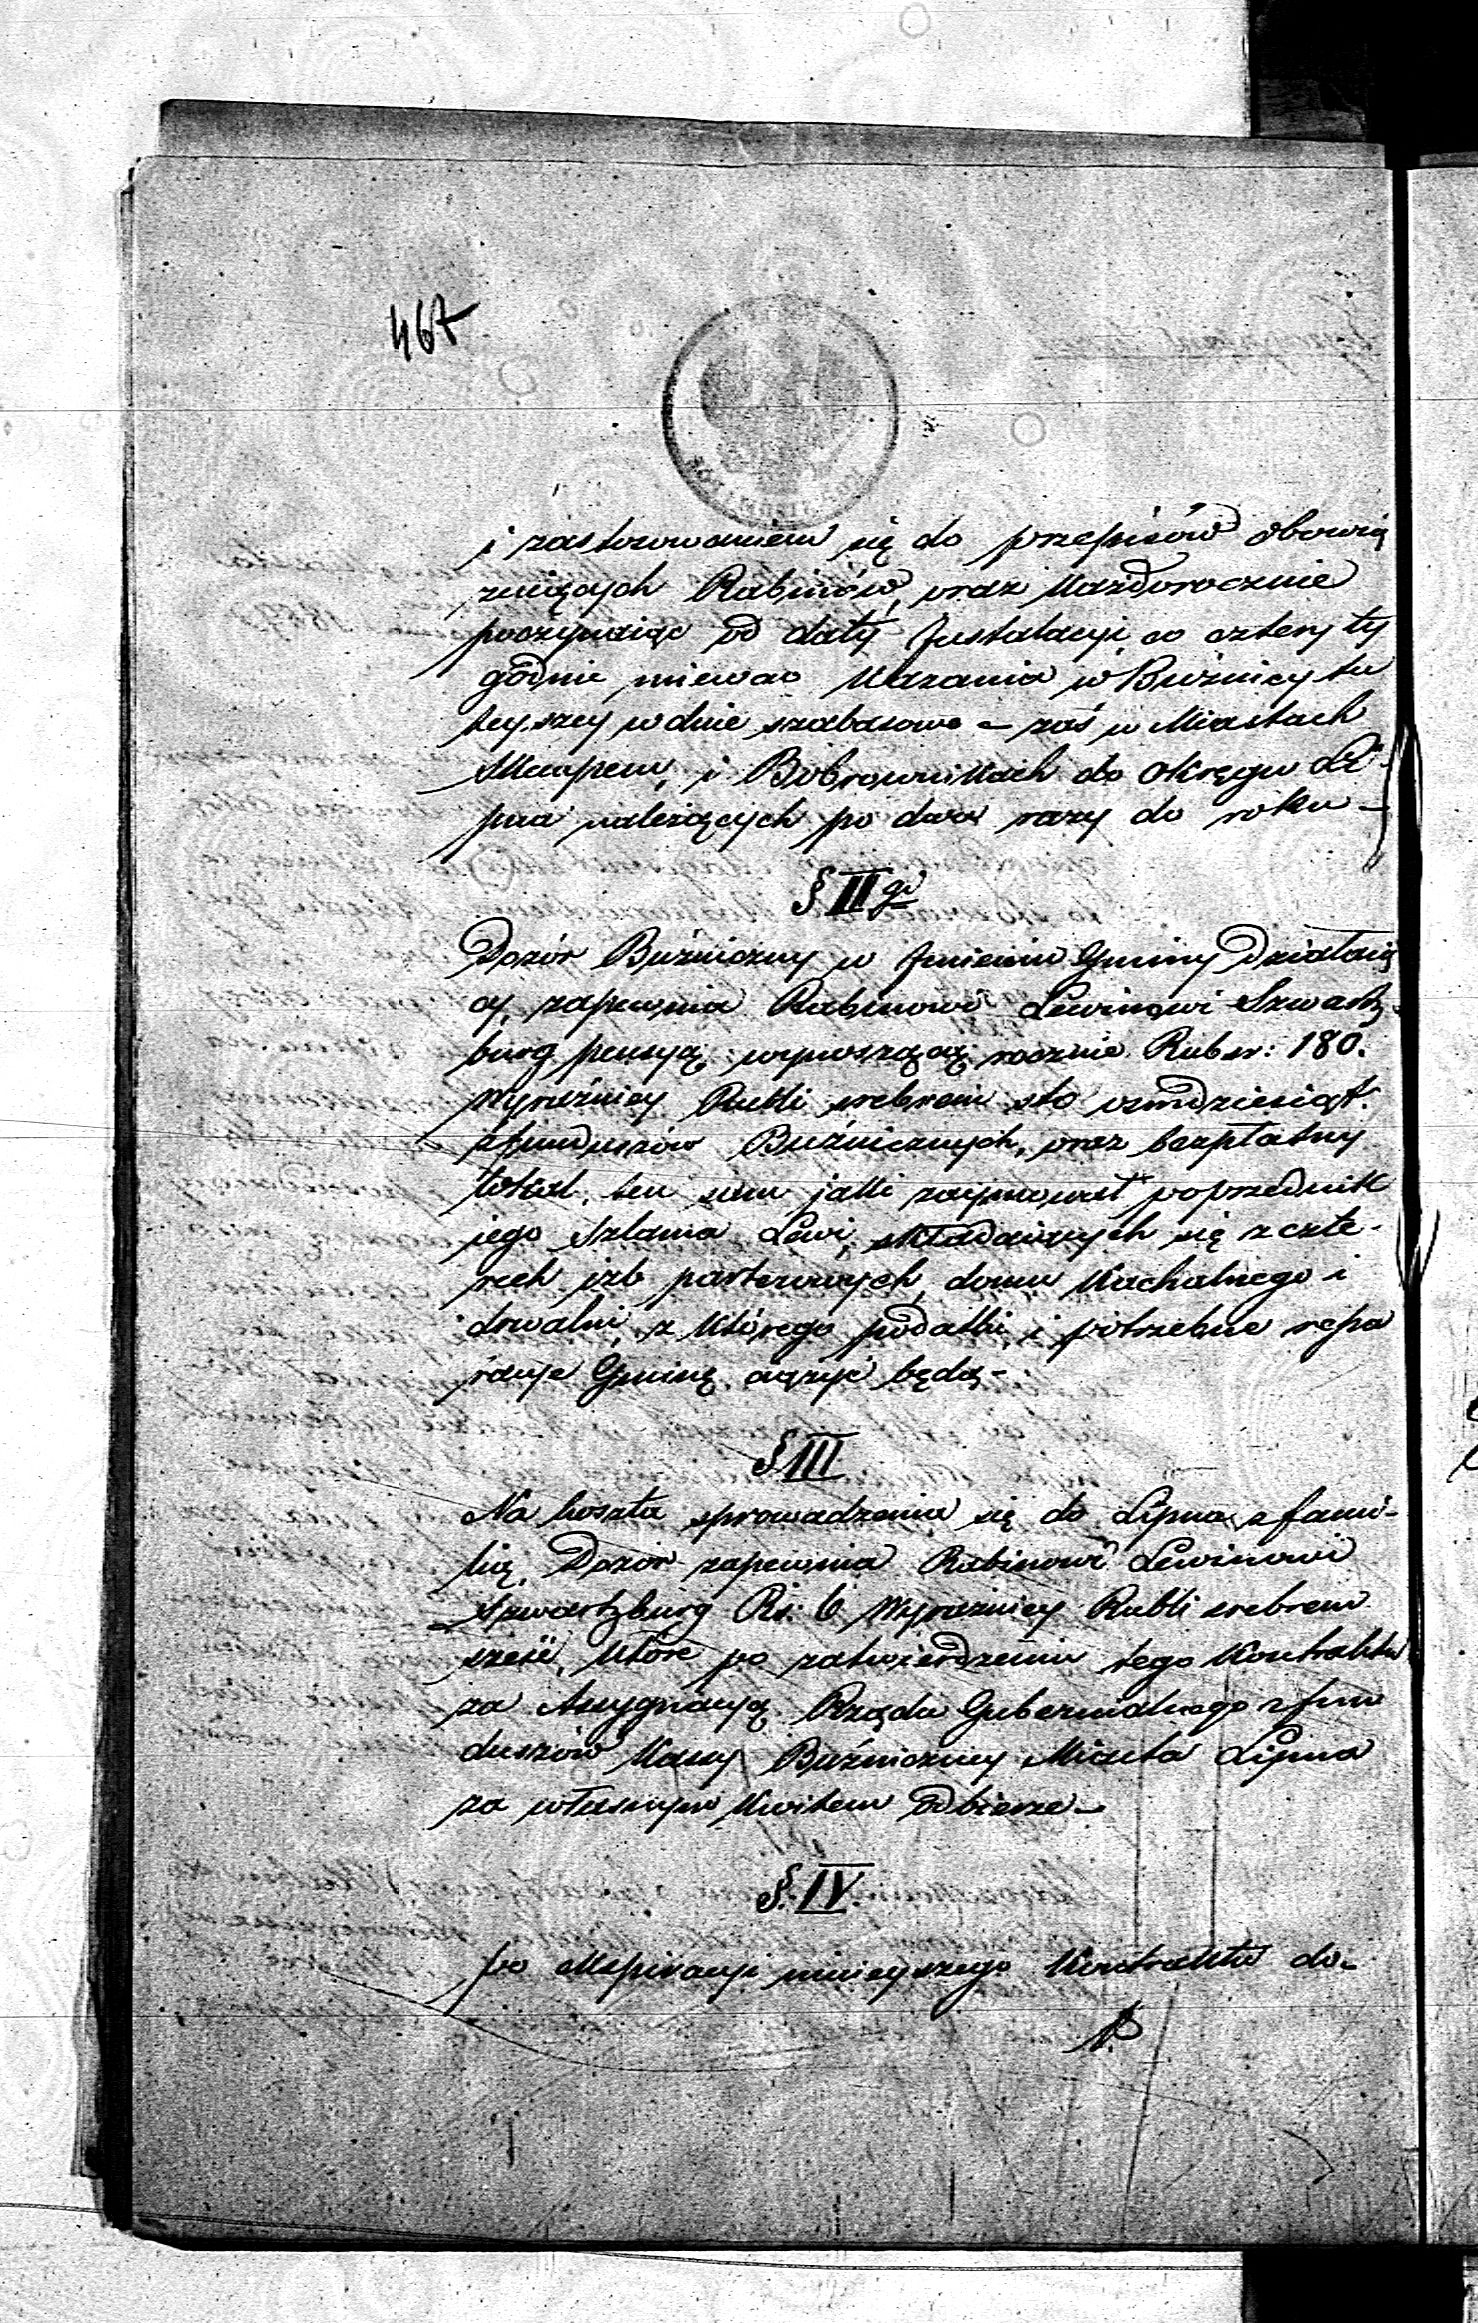 467
i zastosowaniem się do przepisów obowią
zuiących Rabinów, oraz Każdorocznie
poczynaiąc od daty Instalacyi co cztery ty
godnie miewać Kazania w Bużnicy tu
teyszey w dnie szabasowe – zaś w Miastach
Skempem, i Bobrownikach do okręgu Li-
pna należących po dwa razy do roku –
§ II gi
Dozór Bużniczny w Imieniu Gminy Działaią
cy, zapewnia Rabinowi Lewinowi Szwartz-
burg pensyą wynoszącą rocznie Rub sr: 180.
Wyraźniey Rubli srebrem sto osmdziesiąt.
z funduszów Bużnicznych, oraz bezpłatny
lokal, ten sam jaki zaymował poprzednik
jego Szlama Lewi, składaiących się z czte-
rech izb parterowych, domu Kachalnego i
drwalni, z którego podatki, i potrzebne repa
racye Gminę ciążyć będą –
§ III
Na koszta sprowadzenia się do Lipna z fami-
lią, Dozór zapewnia Rabinowi Lewinowi
Szwartzburg Rs: 6 Wyraźniey Rubli srebrem
sześć, które po zatwierdzeniu tego Kontraktu
za Assygnacyą Rządu Gubernialnego z fun
duszów Kassy Bużniczney Miasta Lipna
za własnym Kwitem odbierze –
§. IV.
po Expiracyi ninieyszego Kontraktu do-